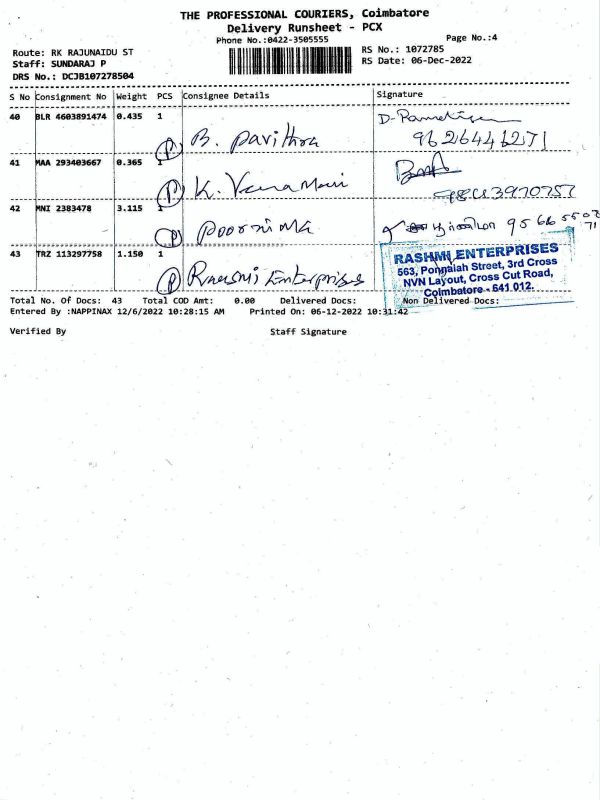 THE PROFESSIONAL COURIERS, Coimbatore
Delivery Runsheet - PCX
Phone No.:0422-3505555
Page No.:4
Route: RK RAJUNAIDU ST
RS No.: 1072785
Staff: SUNDARAJ P
RS Date: 06-Dec-2022
DRS No.: DCJB107278504
S No Consignment No Weight PCS Consignee Details Signature
40 BLR 4603891474 0.435 1
P B. Pavithra
9626446271
41 MAA 293403667 0.365 1
P K.
42 MNI 2383478 3.115 1
P Poornima
43 TRZ 113297758 1.150 1
P Enterprises
RASHMI ENTERPRISES
563, Ponnaiah Street, 3rd Cross
NVN Layout, Cross Cut Road,
Coimbatore - 641 012.
Total No. Of Docs: 43 Total COD Amt: 0.00 Delivered Docs: Non Delivered Docs:
Entered By :NAPPINAX 12/6/2022 10:28:15 AM Printed On: 06-12-2022 10:31:42
Verified By Staff Signature